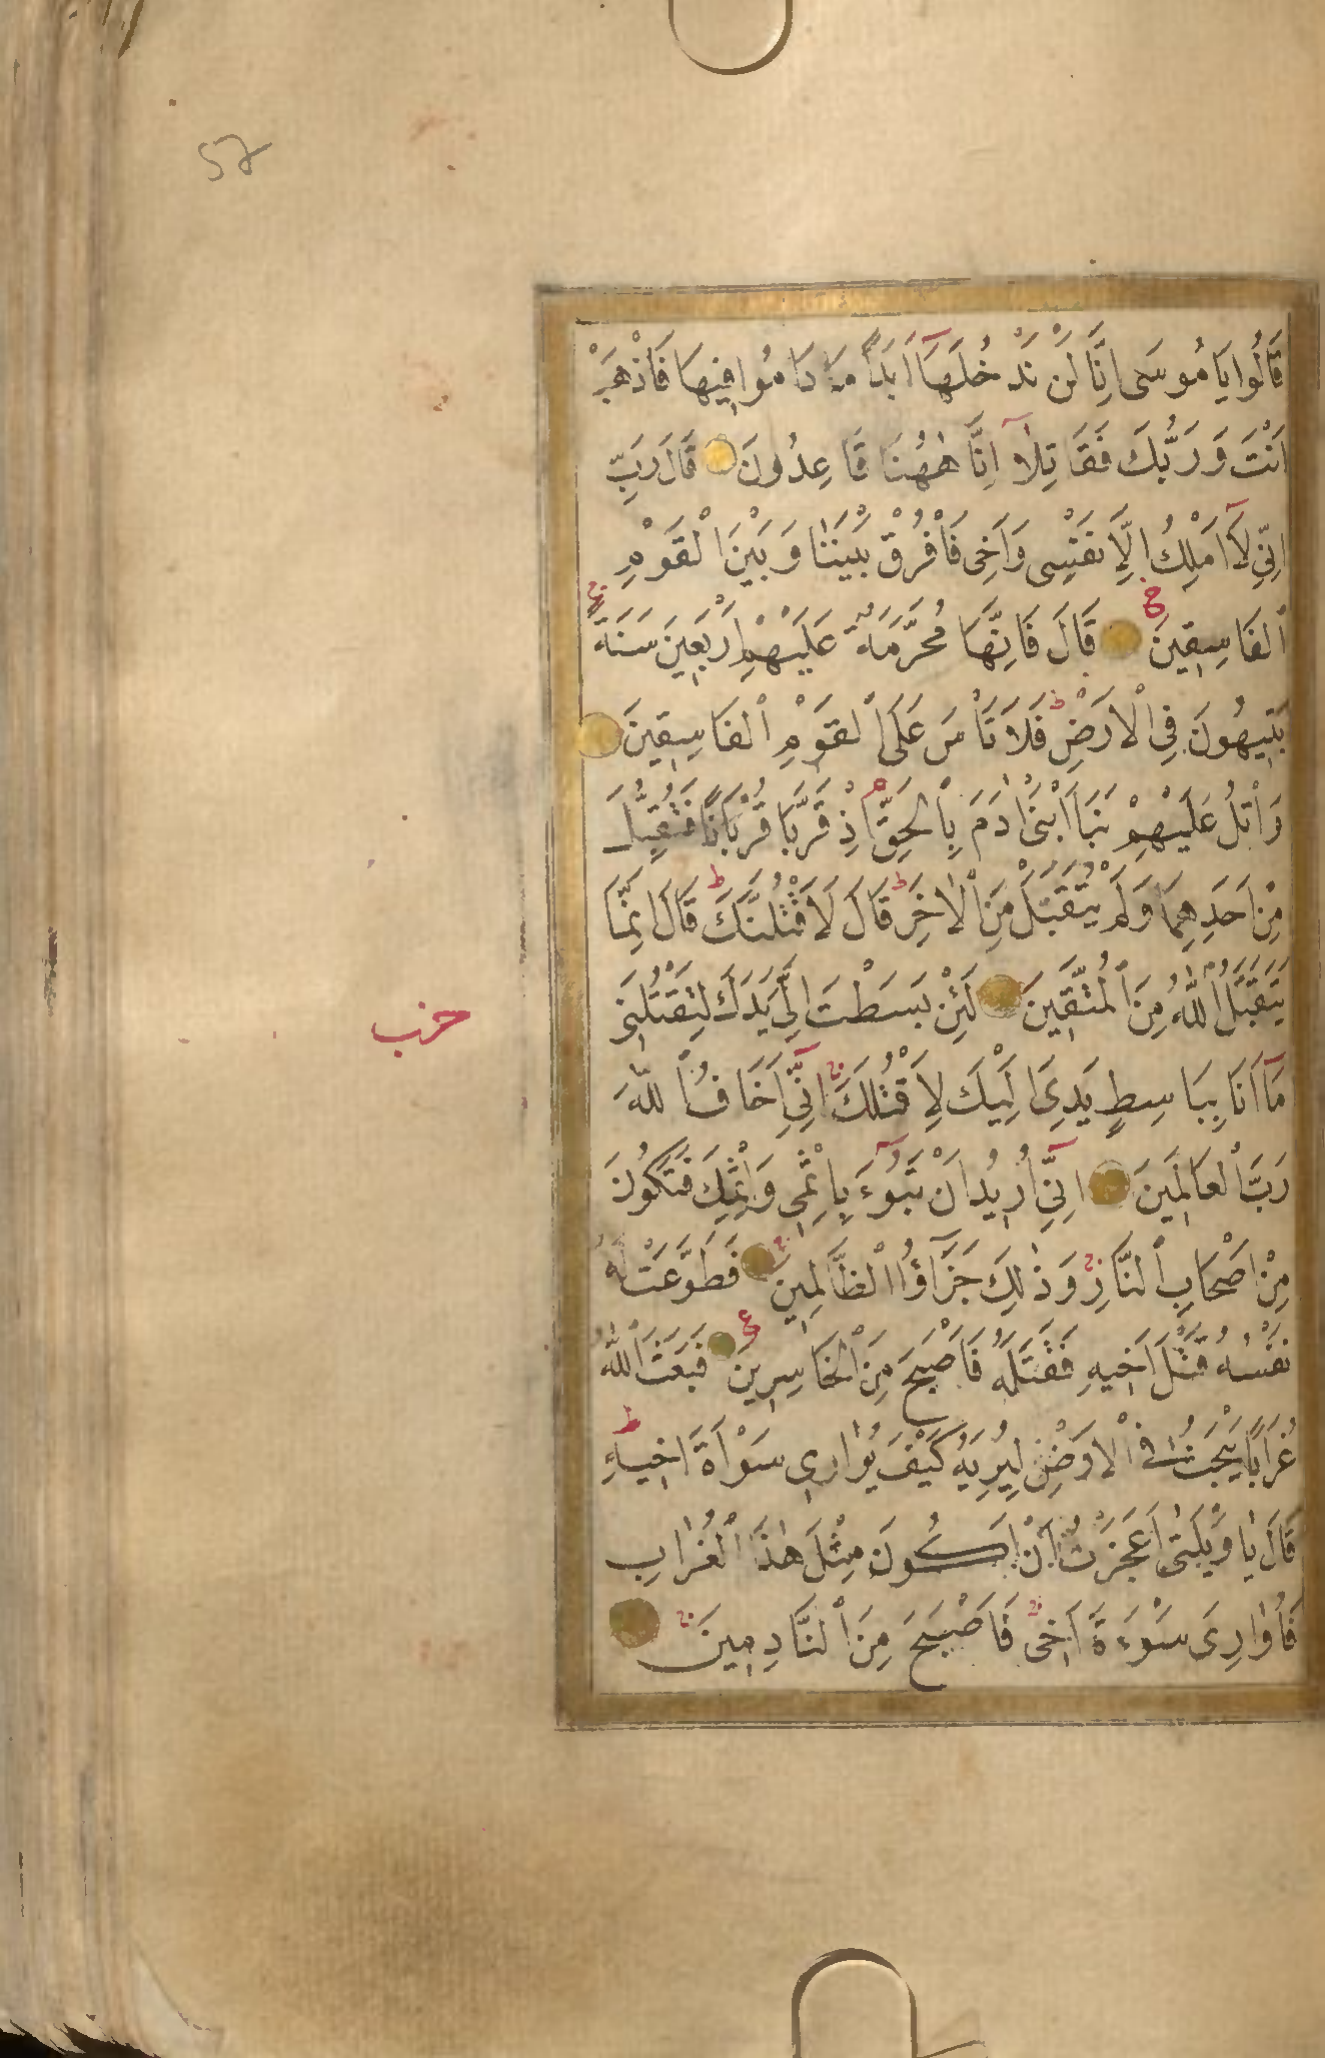 57
قَالُوا يَا مُوسَى اِنَّا لَنْ نَدْخُلَهَٓا اَبَدًا مَا دَامُوا فِيهَا فَاذْهَبْ
اَنْتَ وَرَبُّكَ فَقَاتِلَٓا اِنَّا هٰهُنَا قَاعِدُونَ قَالَ رَبِّ
اِنِّي لَٓا اَمْلِكُ اِلَّا نَفْسِى وَاَخِى فَافْرُقْ بَيْنَنَا وَبَيْنَ الْقَوْمِ
الْفَاسِقِينَ قَالَ فَاِنَّهَا مُحَرَّمَةٌ عَلَيْهِمْ اَرْبَعِينَ سَنَةً
يَتِيهُونَ فِى الْاَرْضِ فَلَا تَاْسَ عَلَى الْقَوْمِ الْفَاسِقِينَ
وَاتْلُ عَلَيْهِمْ نَبَاَ ابْنَىْ اٰدَمَ بِالْحَقِّ اِذْ قَرَّبَا قُرْبَانًا فَتُقُبِّلَ
مِنْ اَحَدِهِمَا وَلَمْ يُتَقَبَّلْ مِنَ الْاٰخَرِ قَالَ لَاَقْتُلَنَّكَ قَالَ اِنَّمَا
يَتَقَبَّلُ اللّٰهُ مِنَ الْمُتَّقِينَ لَئِنْ بَسَطْتَ اِلَىَّ يَدَكَ لِتَقْتُلَنِى
حزب
مَٓا اَنَا بِبَاسِطٍ يَدِىَ اِلَيْكَ لِاَقْتُلَكَ اِنِّٓى اَخَافُ اللّٰهَ
رَبَّ الْعَالَمِينَ اِنِّٓى اُرِيدُ اَنْ تَبُٓوءَ بِاِثْمِى وَاِثْمِكَ فَتَكُونَ
مِنْ اَصْحَابِ النَّارِ وَذٰلِكَ جَزَٓاؤُا الظَّالِمِينَ فَطَوَّعَتْ لَهُ
نَفْسُهُ قَتْلَ اَخِيهِ فَقَتَلَهُ فَاَصْبَحَ مِنَ الْخَاسِرِينَ فَبَعَثَ اللّٰهُ
غُرَابًا يَبْحَثُ فِى الْاَرْضِ لِيُرِيَهُ كَيْفَ يُوَارِى سَوْاَةَ اَخِيهِ
قَالَ يَا وَيْلَتٰى اَعَجَزْتُ اَنْ اَكُونَ مِثْلَ هٰذَا الْغُرَابِ
فَاُوَارِىَ سَوْءَةَ اَخِى فَاَصْبَحَ مِنَ النَّادِمِينَ